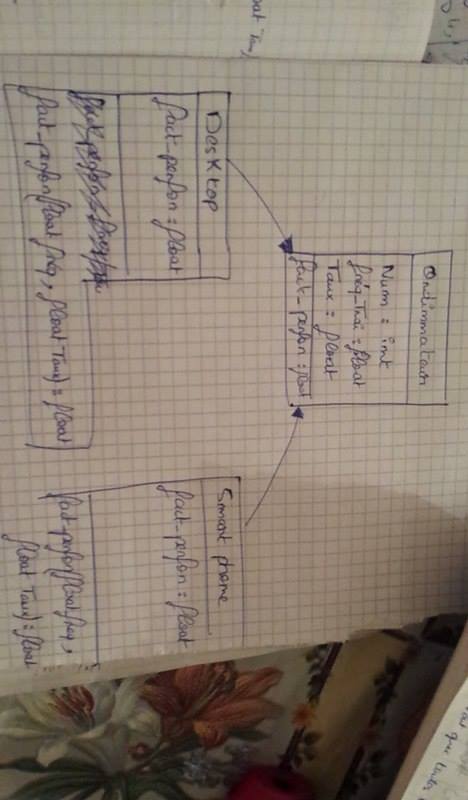 Ordinnateur
Num : int
fréq_Trai : float
Taux : float
fact_perfon : float
Desktop
fact_perfon : float
fact_perfon(float fréq, float Taux) : float
Smart phone
fact_perfon : float
fact_perfon(float fréq,
float Taux) : float